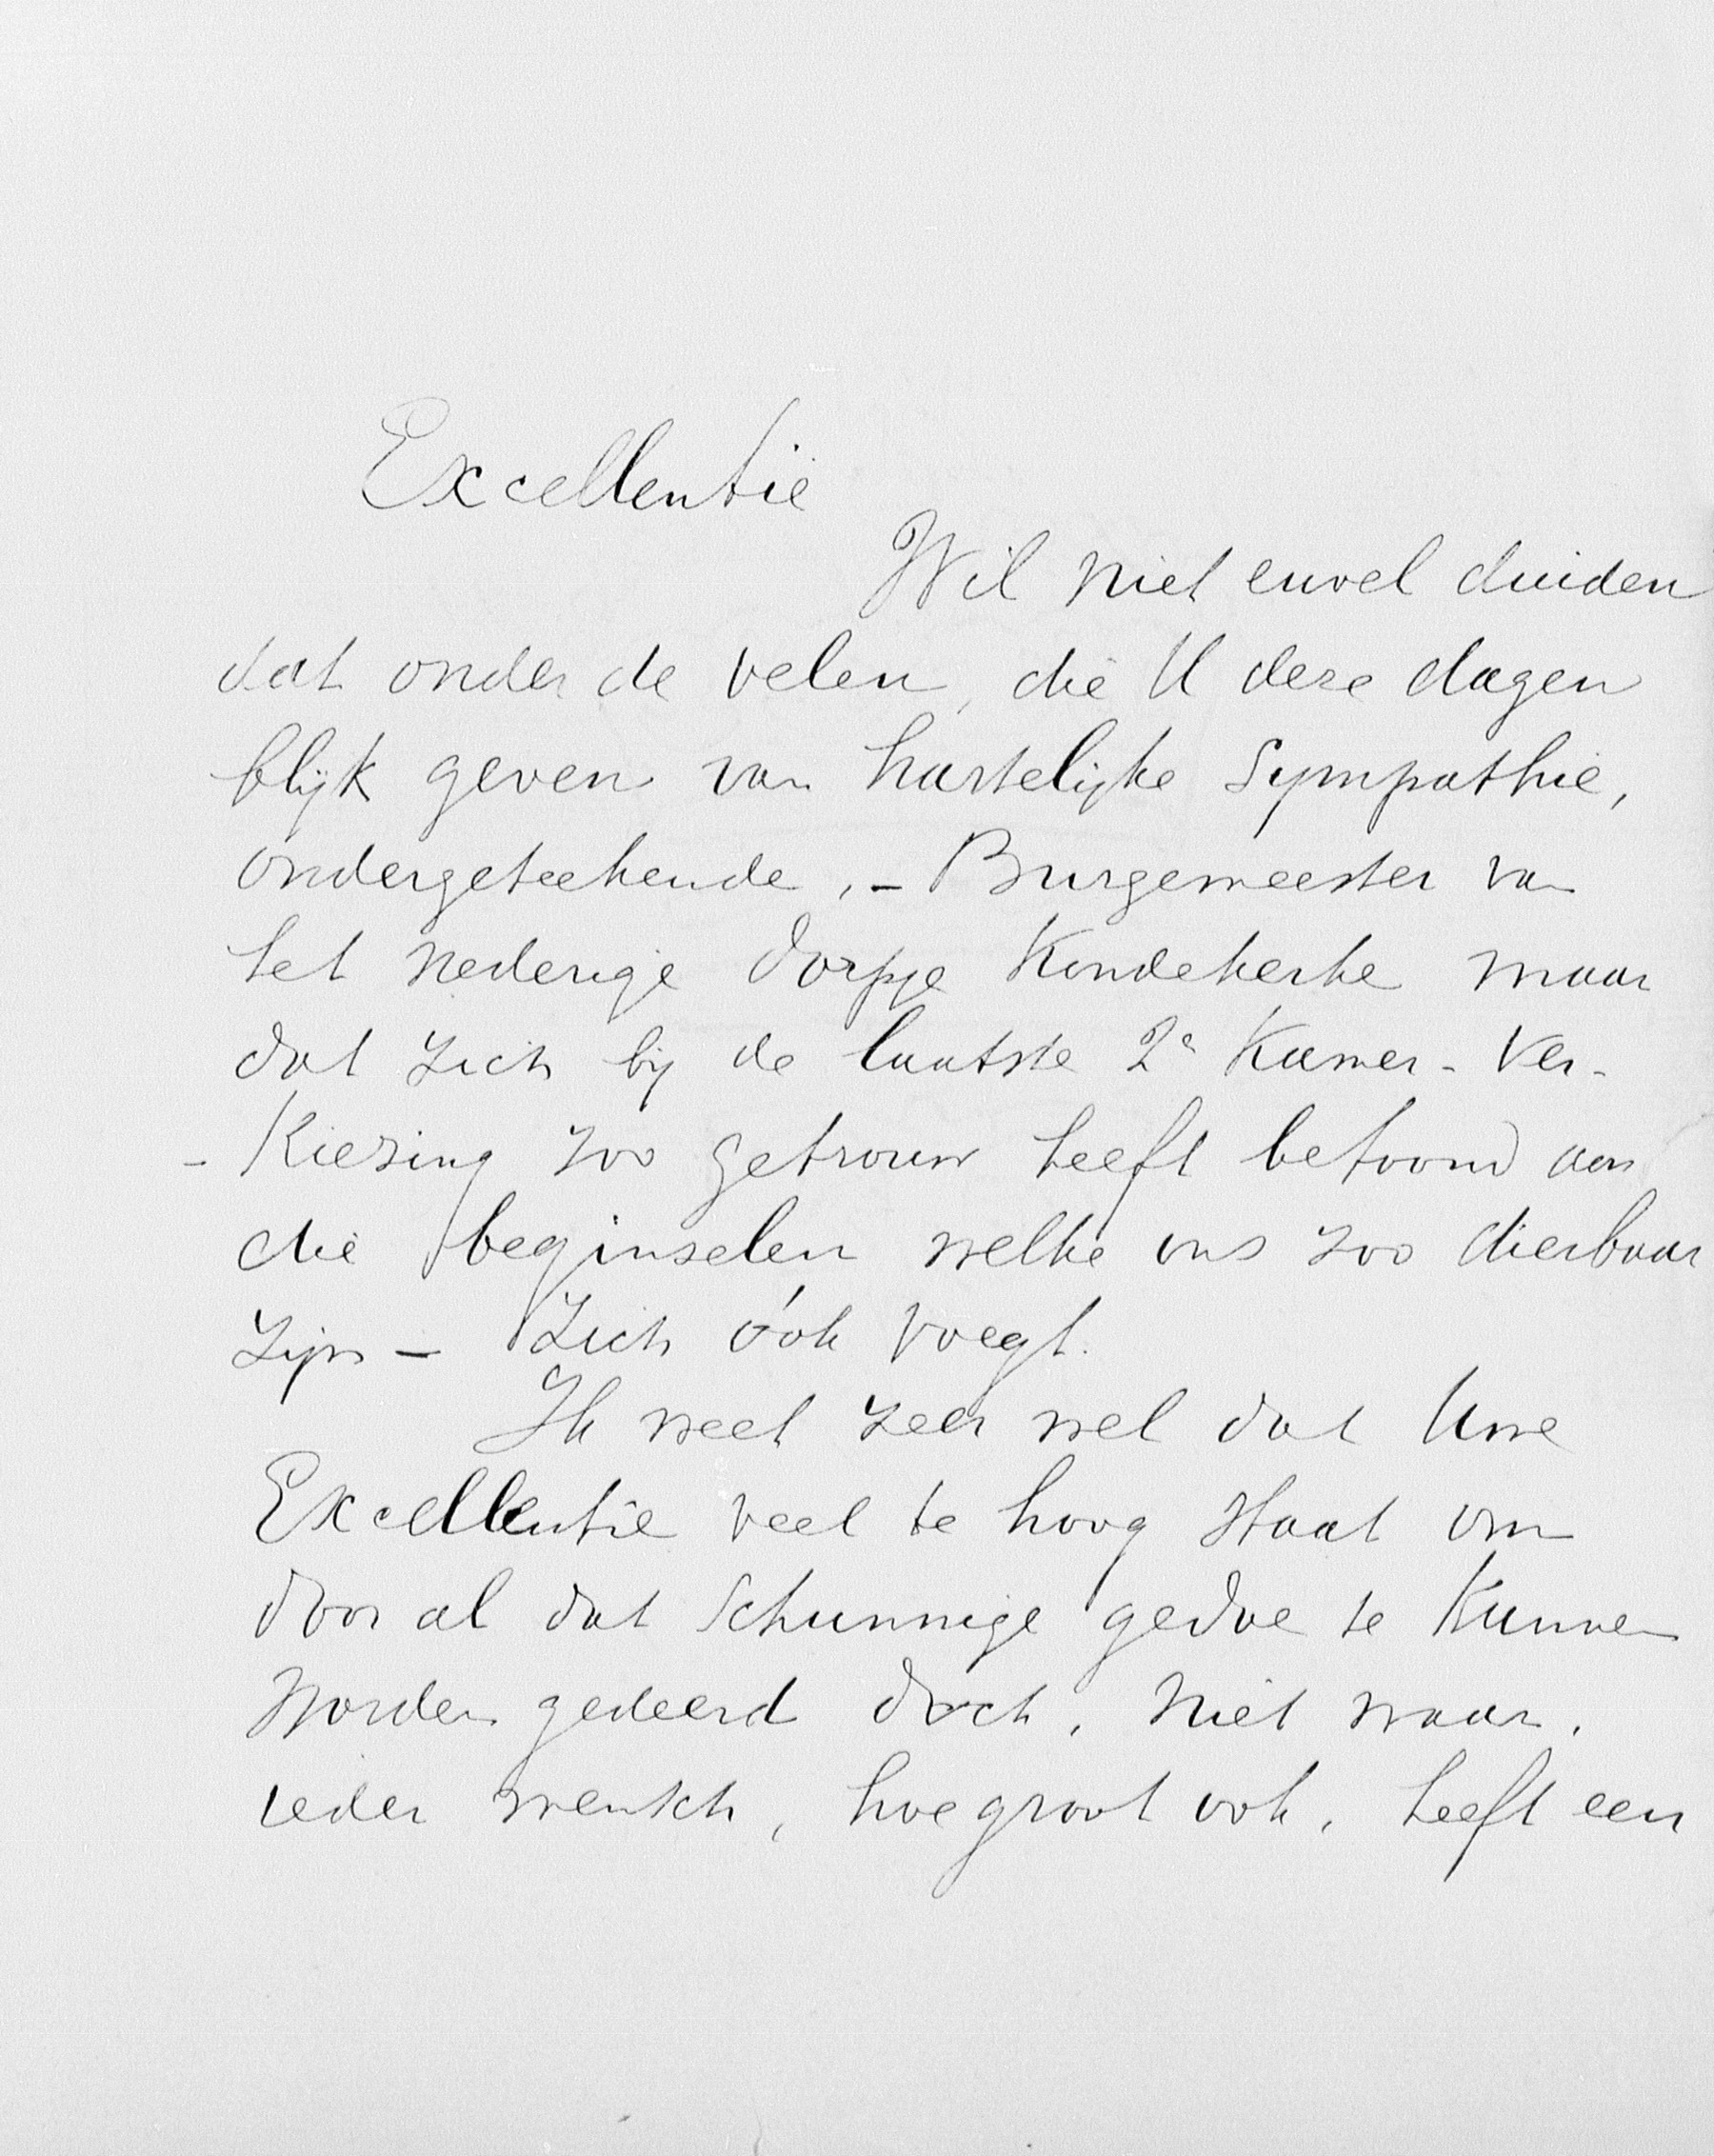 Excellentie
Wil niet euvel duiden
dat onder de velen, die U deze dagen
blijk geven van hartelijke sympathie,
ondergeteekende, - Burgemeester van
het nederige dorpje Koudekerke maar
dat zich bij de laatste 2e Kamer - Ver-
- Kiezing zoo getrouw heeft betoond aan
die beginselen welke ons zoo dierbaar
zijn - zich óók voegt.
Ik weet zeer wel dat Uwe
Excellentie veel te hoog staat om
door al dat schunnige gedoe te kunnen
worden gedeerd doch, niet waar,
ieder mensch, hoe groot ook, heeft een